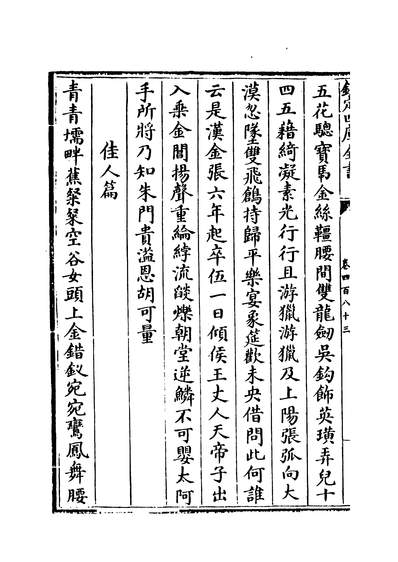 欽定四庫全書
卷四百八十三
五花驄寶馬金絲韁腰間雙龍劒吳鈎飾英璜弄兒十
四五藉綺凝素光行行且游獵游獵及上陽張弧向大
漠忽墜雙飛鶬持歸平樂宴衆筵歡未央借問此何誰
云是漢金張六年起卒伍一日傾侯王丈人天帝子出
入乗金閶揚聲重綸綍流燄爍朝堂逆鱗不可嬰太阿
手所將乃知朱門貴溢恩胡可量
佳人篇
青青壖畔蕉粲粲空谷女頭上金錯釵宛宛鸞鳳舞腰